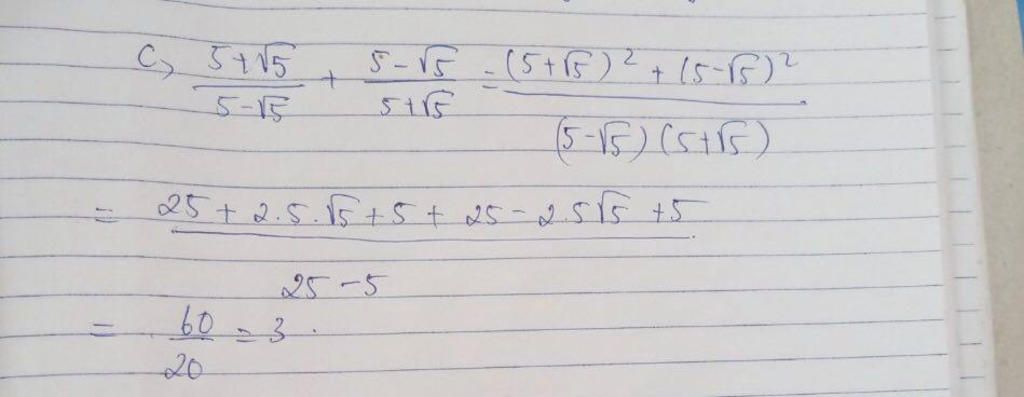 c, (5+√5)/(5-√5) + (5-√5)/(5+√5) = ((5+√5)² + (5-√5)²)/((5-√5)(5+√5))
= (25 + 2.5.√5 + 5 + 25 - 2.5√5 + 5)/(25 - 5)
= 60/20 = 3.